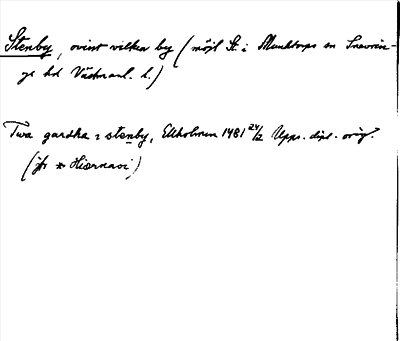 Stenby, ovisst vilka by (möjl. St. i Munktorps sn Snevrin-
ge hd Västmanl. l.)
Twa gardha i stenby, Ekholmen 1481 24/2 Upps. dipl. orig.
(jfr * Hiærnavi)